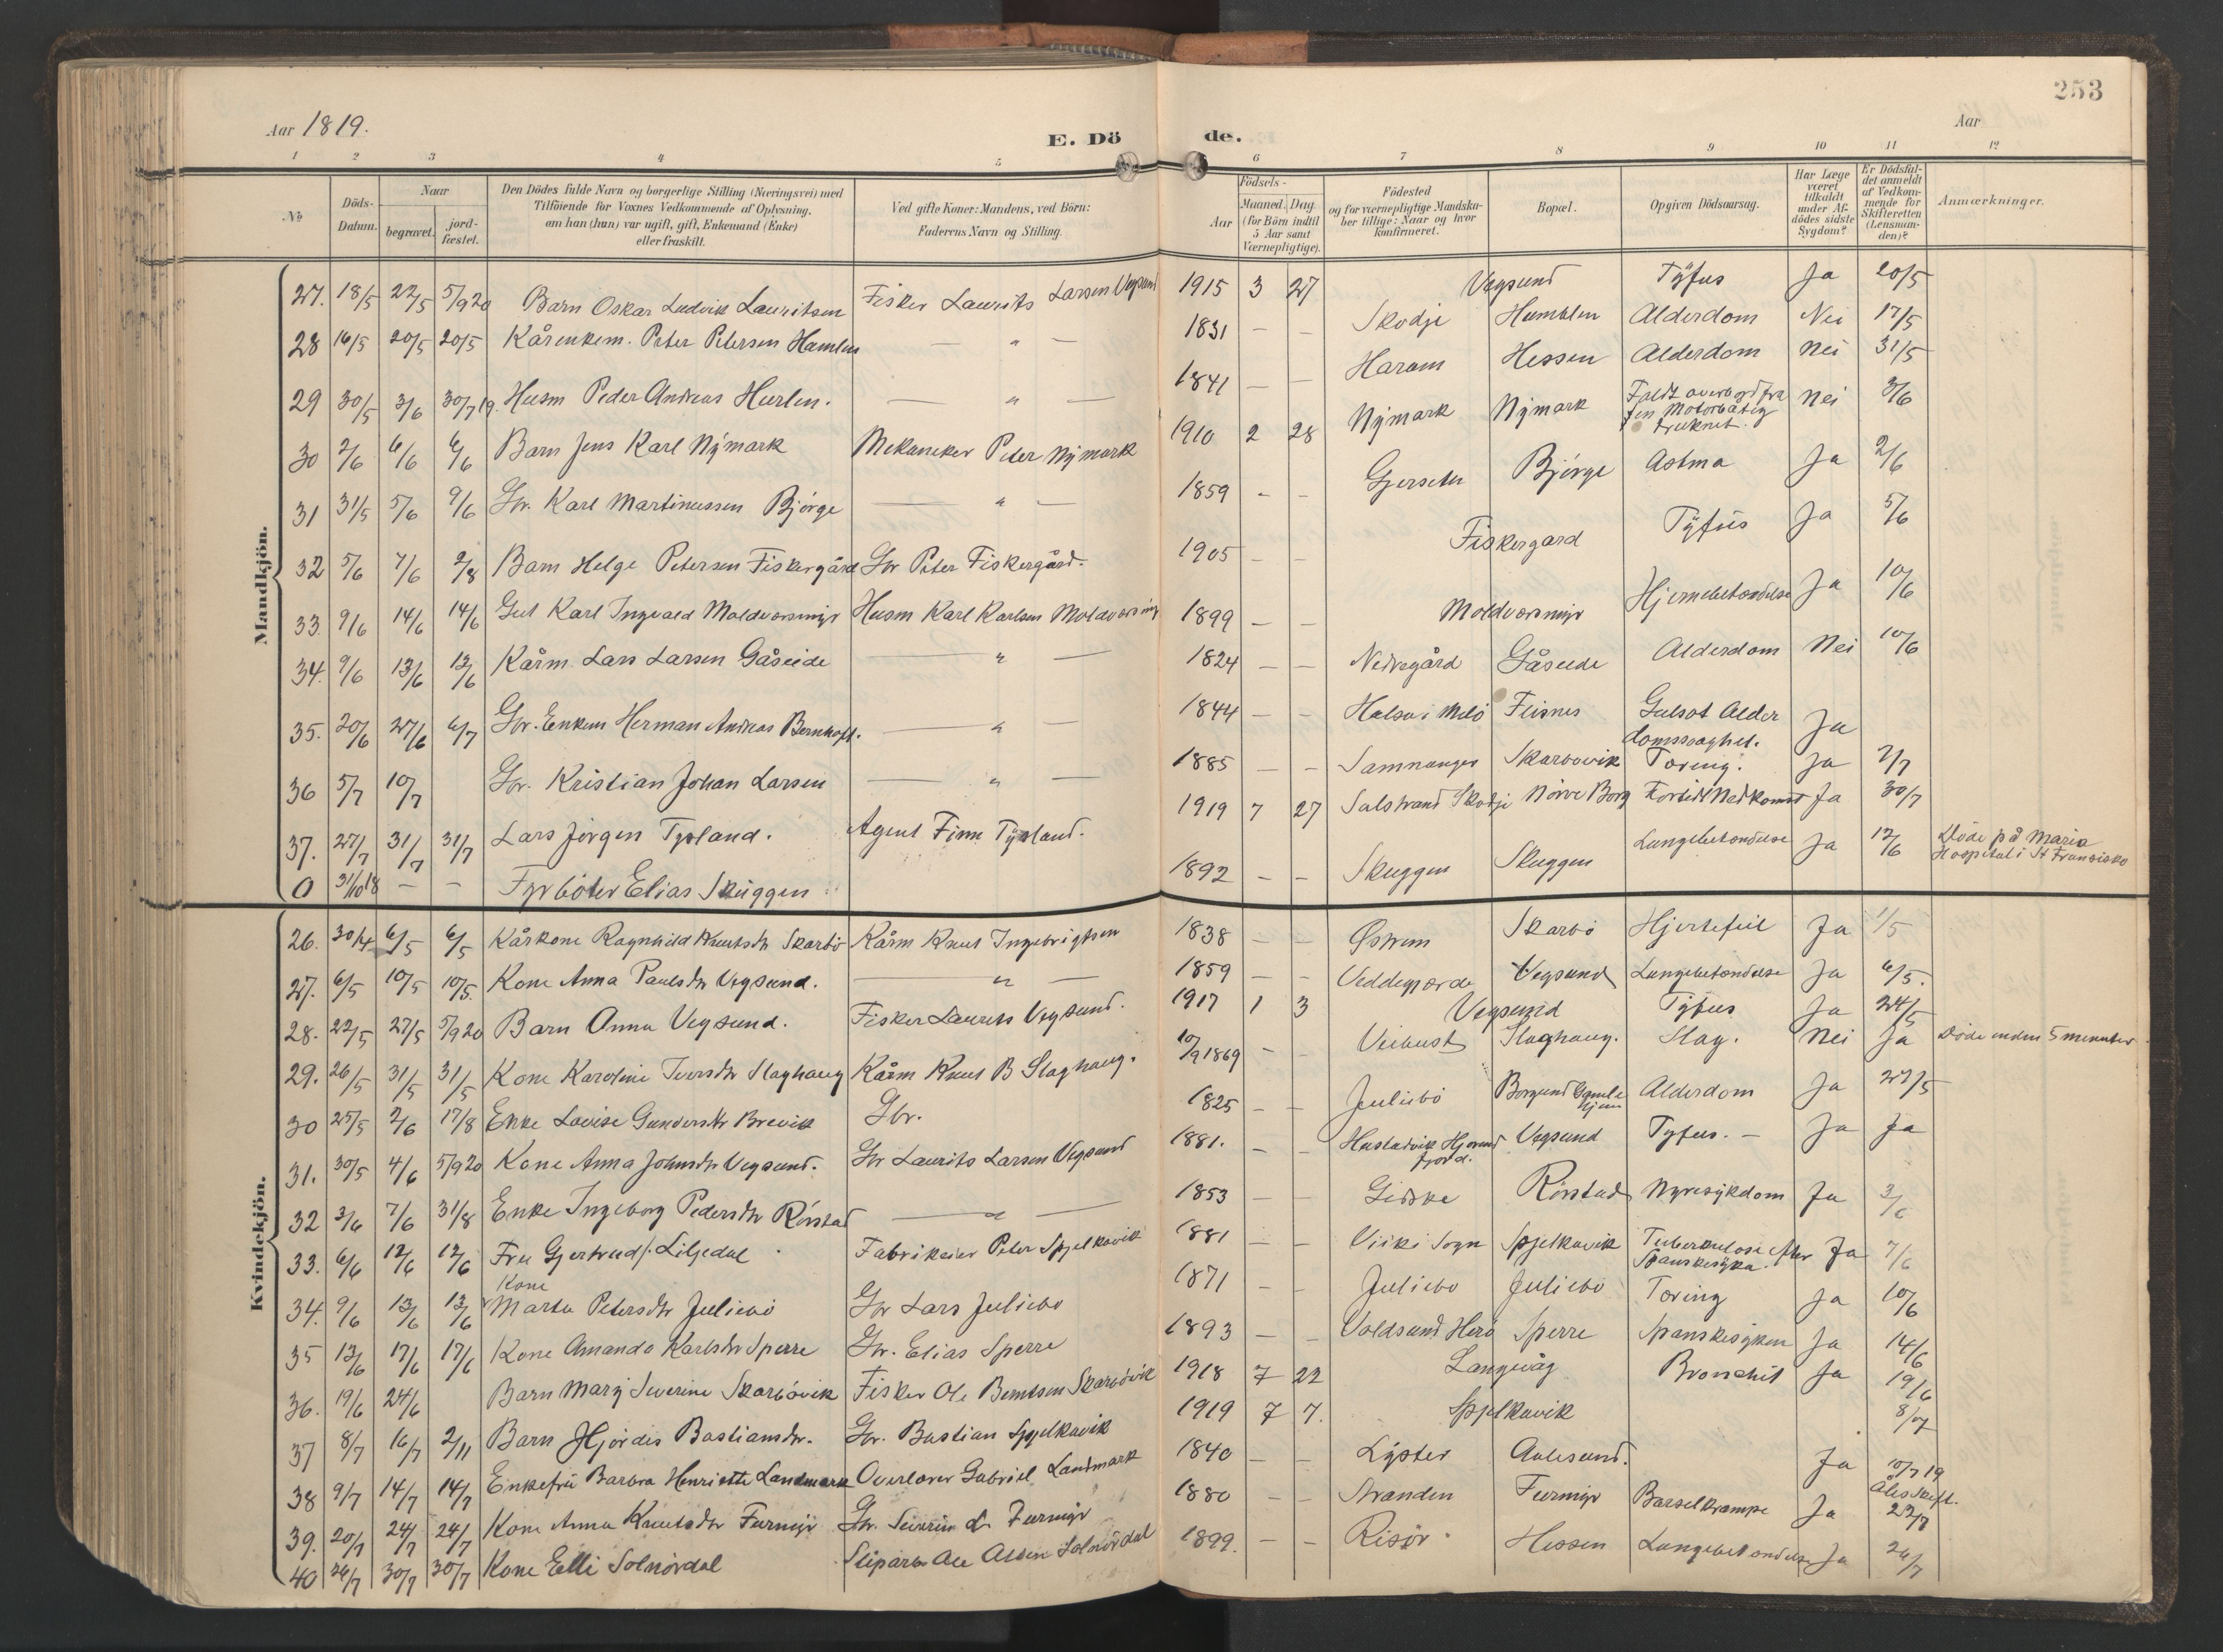 253
Aar 1819.
E. Dö de.
Aar
1 2 3 4 5 6 7 8 9 10 11 12
No
Döds-Datum.
Naar
begravet.
jord-fæstet.
Den Dödes fulde Navn og borgerlige Stilling (Næringsvei) med
Tilföiende for Voxnes Vedkommende af Oplysning,
om han (hun) var ugift, gift, Enkemand (Enke)
eller fraskilt.
Ved gifte Koner: Mandens, ved Börn:
Faderens Navn og Stilling.
Födsels-
Aar
Maaned. Dag
(for Börn indtil
5 Aar samt
Værnepligtige).
Födested
og for værnepligtige Mandska-
ber tillige: Naar og hvor
konfirmeret.
Bopæl.
Opgiven Dödsaarsag.
Har Læge
været
tilkaldt
under Af-
dödes sidste
Sygdom?
Er Dödsfal-
det anmeldt
af Vedkom-
mende for
Skifteretten
(Lensman-
den)?
Anmærkninger.
Mandkjön.
27. 18/5 22/5 5/9 20 Barn Oskar Ludvik Lauritsen Fisker Laurits Larsen Vegsund 1915 3 27 Vegsund Tÿfus Ja 20/5
28 16/5 20/5 20/5 Kårenkem. Peter Petersen Hamlen — " — 1831 — — Skodje Humblen Alderdom Nei 17/5
29 30/5 3/6 30/7 19. Husm Peder Andreas Hurlen. — " — 1841 — — Haram Hessen Alderdom Nei 31/5
30 2/6 6/6 6/6 Barn Jens Karl Nÿmark Mekaneker Peter Nÿmark 1910 2 28 Nÿmark Nÿmark Faldt overbord fra
en Motorbåt og
druknet. Nei 3/6
31 31/5 5/6 9/6 Gbr. Karl Martinussen Bjørge — " — 1859 - - Gjerseter Bjørge Astma Ja 2/6
32 5/6 7/6 2/8 Barn Helge Petersen Fiskergård Gbr Peter Fiskergård. 1905 — — Fiskergard Tÿfus Ja 5/6
33. 9/6 14/6 14/6 Gut Karl Ingvald Moldversmyr Husm Karl Karlsen Moldversmyr 1899 — — Moldversmyr Hjernebetændelse Ja 10/6
34. 9/6 13/6 13/6 Kårm. Lars Larsen Gåseide — " — 1824 — — Nedregård Gåseide Alderdom Nei 10/6
35. 20/6 27/6 6/7 Gbr. Enkem Herman Andreas Bernhoft. — " — 1844 — — Halsa i Melö Flisnes Gulsot Alder
domssvaghet. Ja
36 5/7 10/7 Gbr. Kristian Johan Larsen — " — 1885 — — Samnanger Skarbövik Tæring. Ja 7/7
37. 27/7 31/7 31/7 Lars Jørgen Tysland. Agent Finn Tÿsland. 1919 7 27 Solstrand Skodje Nörve Borg Fortidl Nedkomst Ja 30/7
0 31/10 18 — — Fyrböter Elias Skuggen 1892 — — Skuggen Skuggen Lungebetændelse Ja 12/6 Döde på Maria
Hospital i St Fransisko
Kvindekjön.
26. 30/4 6/5 6/5 Kårkone Ragnhild Knutsdtr Skarbö Kårm Knut Ingebrigtsen 1838 — — Østrem Skarbö Hjertefeil Ja 1/5
27. 6/5 10/5 10/5. Kone Anna Paulsdtr Vegsund. — " — 1859 — — Veddegjærde Vegsund Lungebetændelse Ja 6/5.
28. 22/5 27/5 5/9 20 Barn Anna Vegsund. Fisker Laurits Vegsund. 1917 1 3 Vegsund Tÿfus Ja 24/5
29. 26/5 31/5 31/5 Kone Karoline Iversdtr Slaghaug Kårm Knut B Slaghaug. 10/9 1869 — — Veibust Slaghaug. Slag. Nei Ja Döde inden 5 minuter.
30 25/5 2/6 17/8 Enke Lovise Gundersdtr Brevik Gbr. 1825 — — Juliebö Borgund Gamle
hjem Alderdom Ja 27/5
31. 30/5 4/6 5/9 20 Kone Anna Johnsdtr Vegsund. Gbr Laurits Larsen Vegsund 1881. — — Hustadvik Hjørund
fjord. Vegsund Tyfus. — Ja Ja
32 3/6 7/6 31/8 Enke Ingeborg Pedersdtr Rörstad — " — 1853 — — Giske Rörstad Nyresykdom Ja 3/6
33. 6/6 12/6 12/6 Fru Gjertrud f. Liljedal Fabrikeier Peter Spjelkavik 1881 — — Viik i Sogn Spjelkavik Tuberkulose efter
Spanskesyka. Ja 7/6
34. 9/6 13/6 13/6 Kone
Marta Petersdtr Juliebö Gbr Lars Juliebö 1871 — — Juliebö Juliebö Tæring Ja 10/6
35 13/6 17/6 17/6 Kone Amanda Karlsdtr Sperre Gbr. Elias Sperre 1893 — — Voldsund Herö Sperre Spanskesyken Ja 14/6
36. 19/6 24/6 Barn Mary Severine Skarbövik Fisker Ole Berntsen Skarbövik 1918 7 22 Langevåg Bronchit Ja 19/6
37 8/7 16/7 2/11 Barn Hjördis Bastiansdtr. Gbr. Bastian Spjelkavik 1919 7 7. Spjelkavik 8/7
38 9/7 14/7 14/7 Enkefru Barbra Henriette Landmark Overlærer Gabriel Landmark 1840 — — Lÿster Aalesund. Ja 10/7 19
Åles Skift.
39. 20/7 24/7 24/7 Kone Anna Knutsdtr Furmyr Gbr. Severin L Furmyr 1880 — — Stranden Furmyr Barselkrampe Ja 22/7
40 26/7 30/7 30/7 Kone Elli Solnördal Sliparb. Ole Olsen Solnördal 1899. — — Risör. Hessen Lungebetændelse Ja 26/7